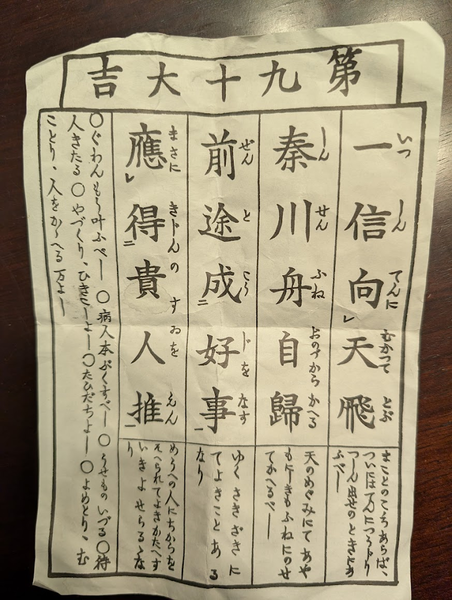 第九十大吉
一信向レ天飛
いつ しん てんに むかつて とぶ
まことのこゝろあらば、
ついにはてんにつうじり
つしん出せのときにあ
ふべし
秦川舟自歸
しん せん ふね おのづから かへる
天のめぐみにてあや
もにしきもふねにのせ
てかへるべし
前途成二好事一
ぜん と こう じを なす
ゆくさきざきに
てよきことある
なり
應レ得二貴人推一
まさに きじんの すゐを えん
めうへの人にちからを
そへられてよきかたへす
いきよせらるゝな
り
○ぐわんもう叶ふべし ○病人本ぷくすべし ○うせものいづる ○待
人きたる ○やづくり、ひきこしよし ○たびだちよし ○よめとり、む
ことり、人をかゝへる万よし